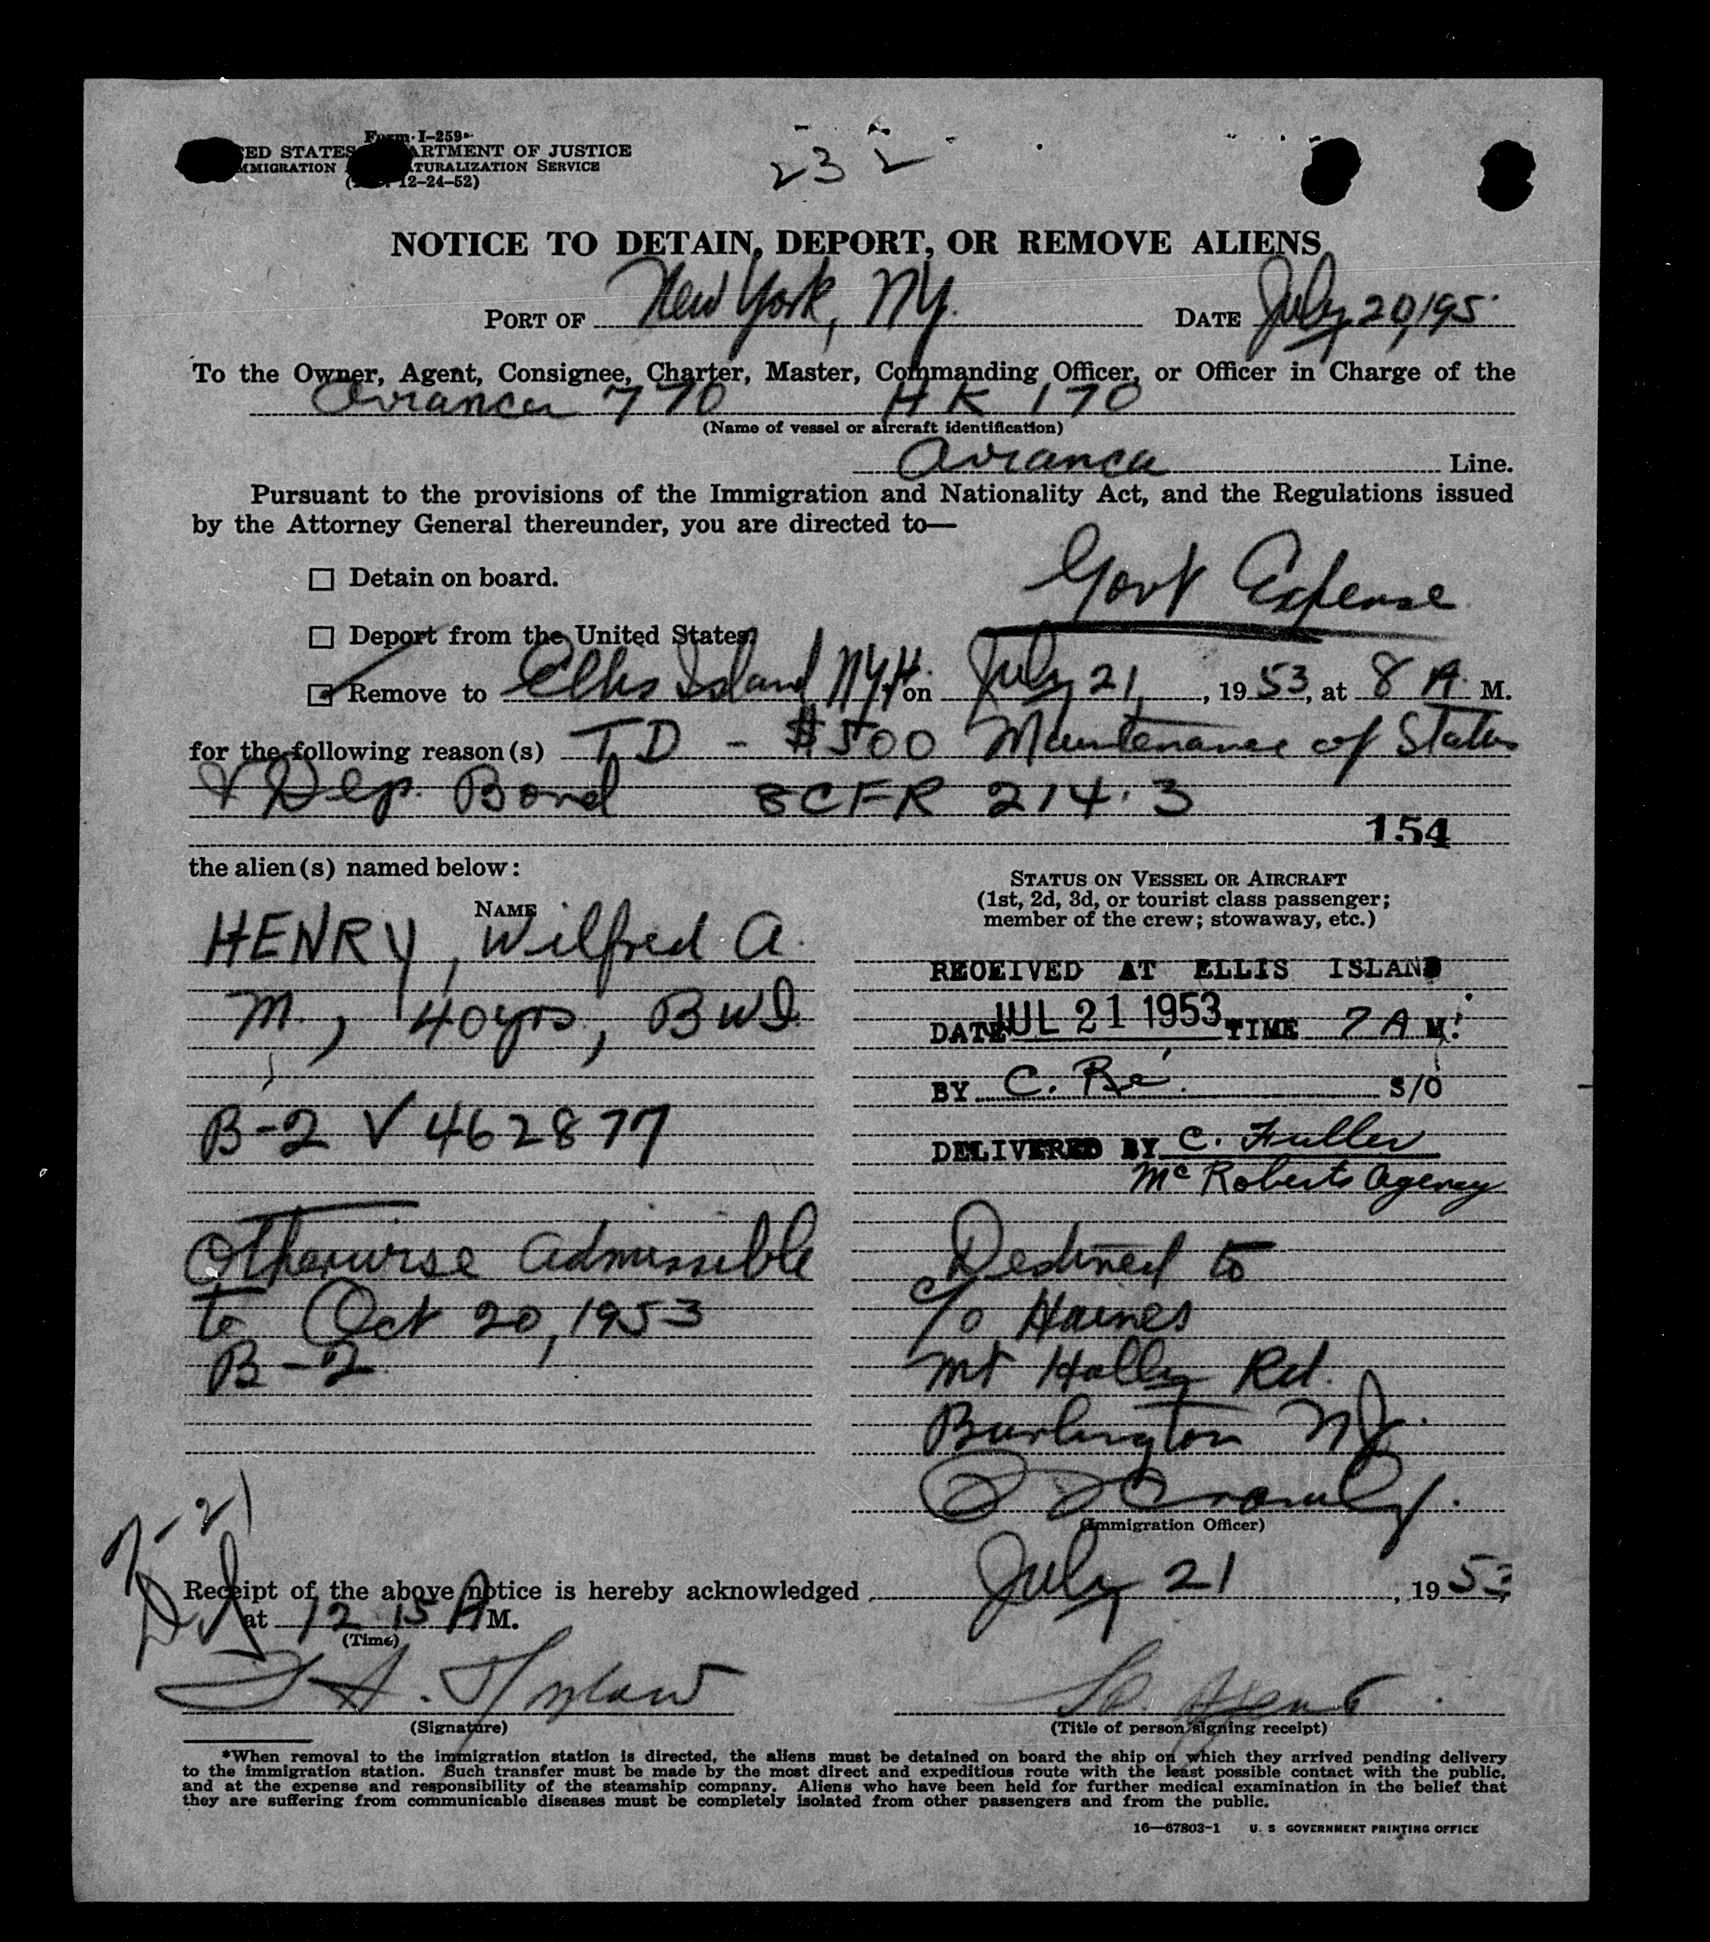 Form I-259
ED STATES ARTMENT OF JUSTICE
MMIGRATION ATURALIZATION SERVICE
12-24-52)
232
NOTICE TO DETAIN, DEPORT, OR REMOVE ALIENS
PORT OF New York, NY. DATE July 20, 195
To the Owner, Agent, Consignee, Charter, Master, Commanding Officer, or Officer in Charge of the
Avianca 770 HK 170
(Name of vessel or aircraft identification)
Avianca Line.
Pursuant to the provisions of the Immigration and Nationality Act, and the Regulations issued
by the Attorney General thereunder, you are directed to—
Govt Expense
☐ Detain on board.
☐ Deport from the United States.
☑ Remove to Ellis Island NYH. on July 21, 1953, at 8 A. M.
for the following reason(s) TD - $500 Maintenance of Status
& Dep. Bond 8CFR 214.3
154
the alien(s) named below:
NAME
STATUS ON VESSEL OR AIRCRAFT
(1st, 2d, 3d, or tourist class passenger;
member of the crew; stowaway, etc.)
HENRY, Wilfred A.
M., 40yrs, BWI
B-2 V 462877
Otherwise admissible
to Oct 20, 1953
B-2
RECEIVED AT ELLIS ISLAND
DATE JUL 21 1953 TIME 7 A M.
BY C. Ré. S/O
DELIVERED BY C. Fuller
McRoberts Agency
Destined to
c/o Haines
Mt Holly Rd.
Burlington NJ.
(Immigration Officer)
7-21
Receipt of the above notice is hereby acknowledged July 21, 1953
at 12 15 A M.
(Time)
(Signature)
(Title of person signing receipt)
*When removal to the immigration station is directed, the aliens must be detained on board the ship on which they arrived pending delivery
to the immigration station. Such transfer must be made by the most direct and expeditious route with the least possible contact with the public,
and at the expense and responsibility of the steamship company. Aliens who have been held for further medical examination in the belief that
they are suffering from communicable diseases must be completely isolated from other passengers and from the public.
16—67803-1 U. S GOVERNMENT PRINTING OFFICE